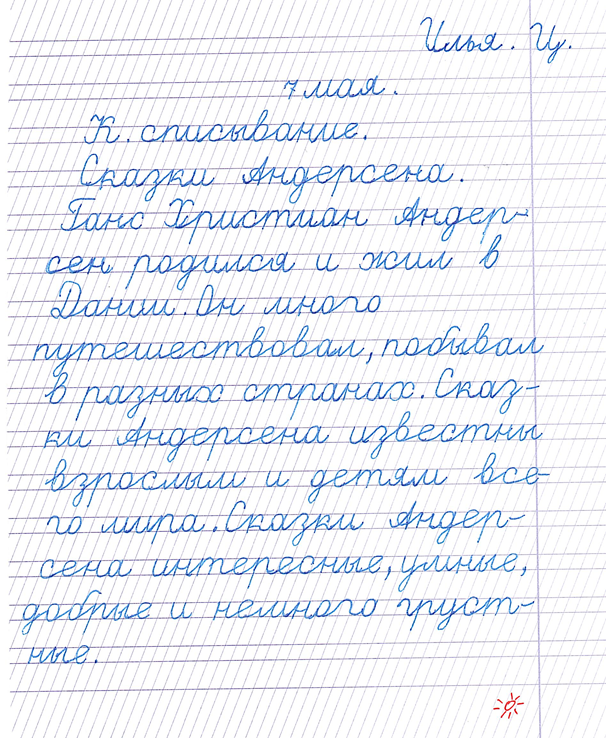 Илья. Ц.
7 мая.
К. списывание.
Сказки Андерсена.
Ганс Христиан Андер-
сен родился и жил в
Дании. Он много
путешествовал, побывал
в разных странах. Сказ-
ки Андерсена известны
взрослым и детям все-
го мира. Сказки Андер-
сена интересные, умные,
добрые и немного груст-
ные.